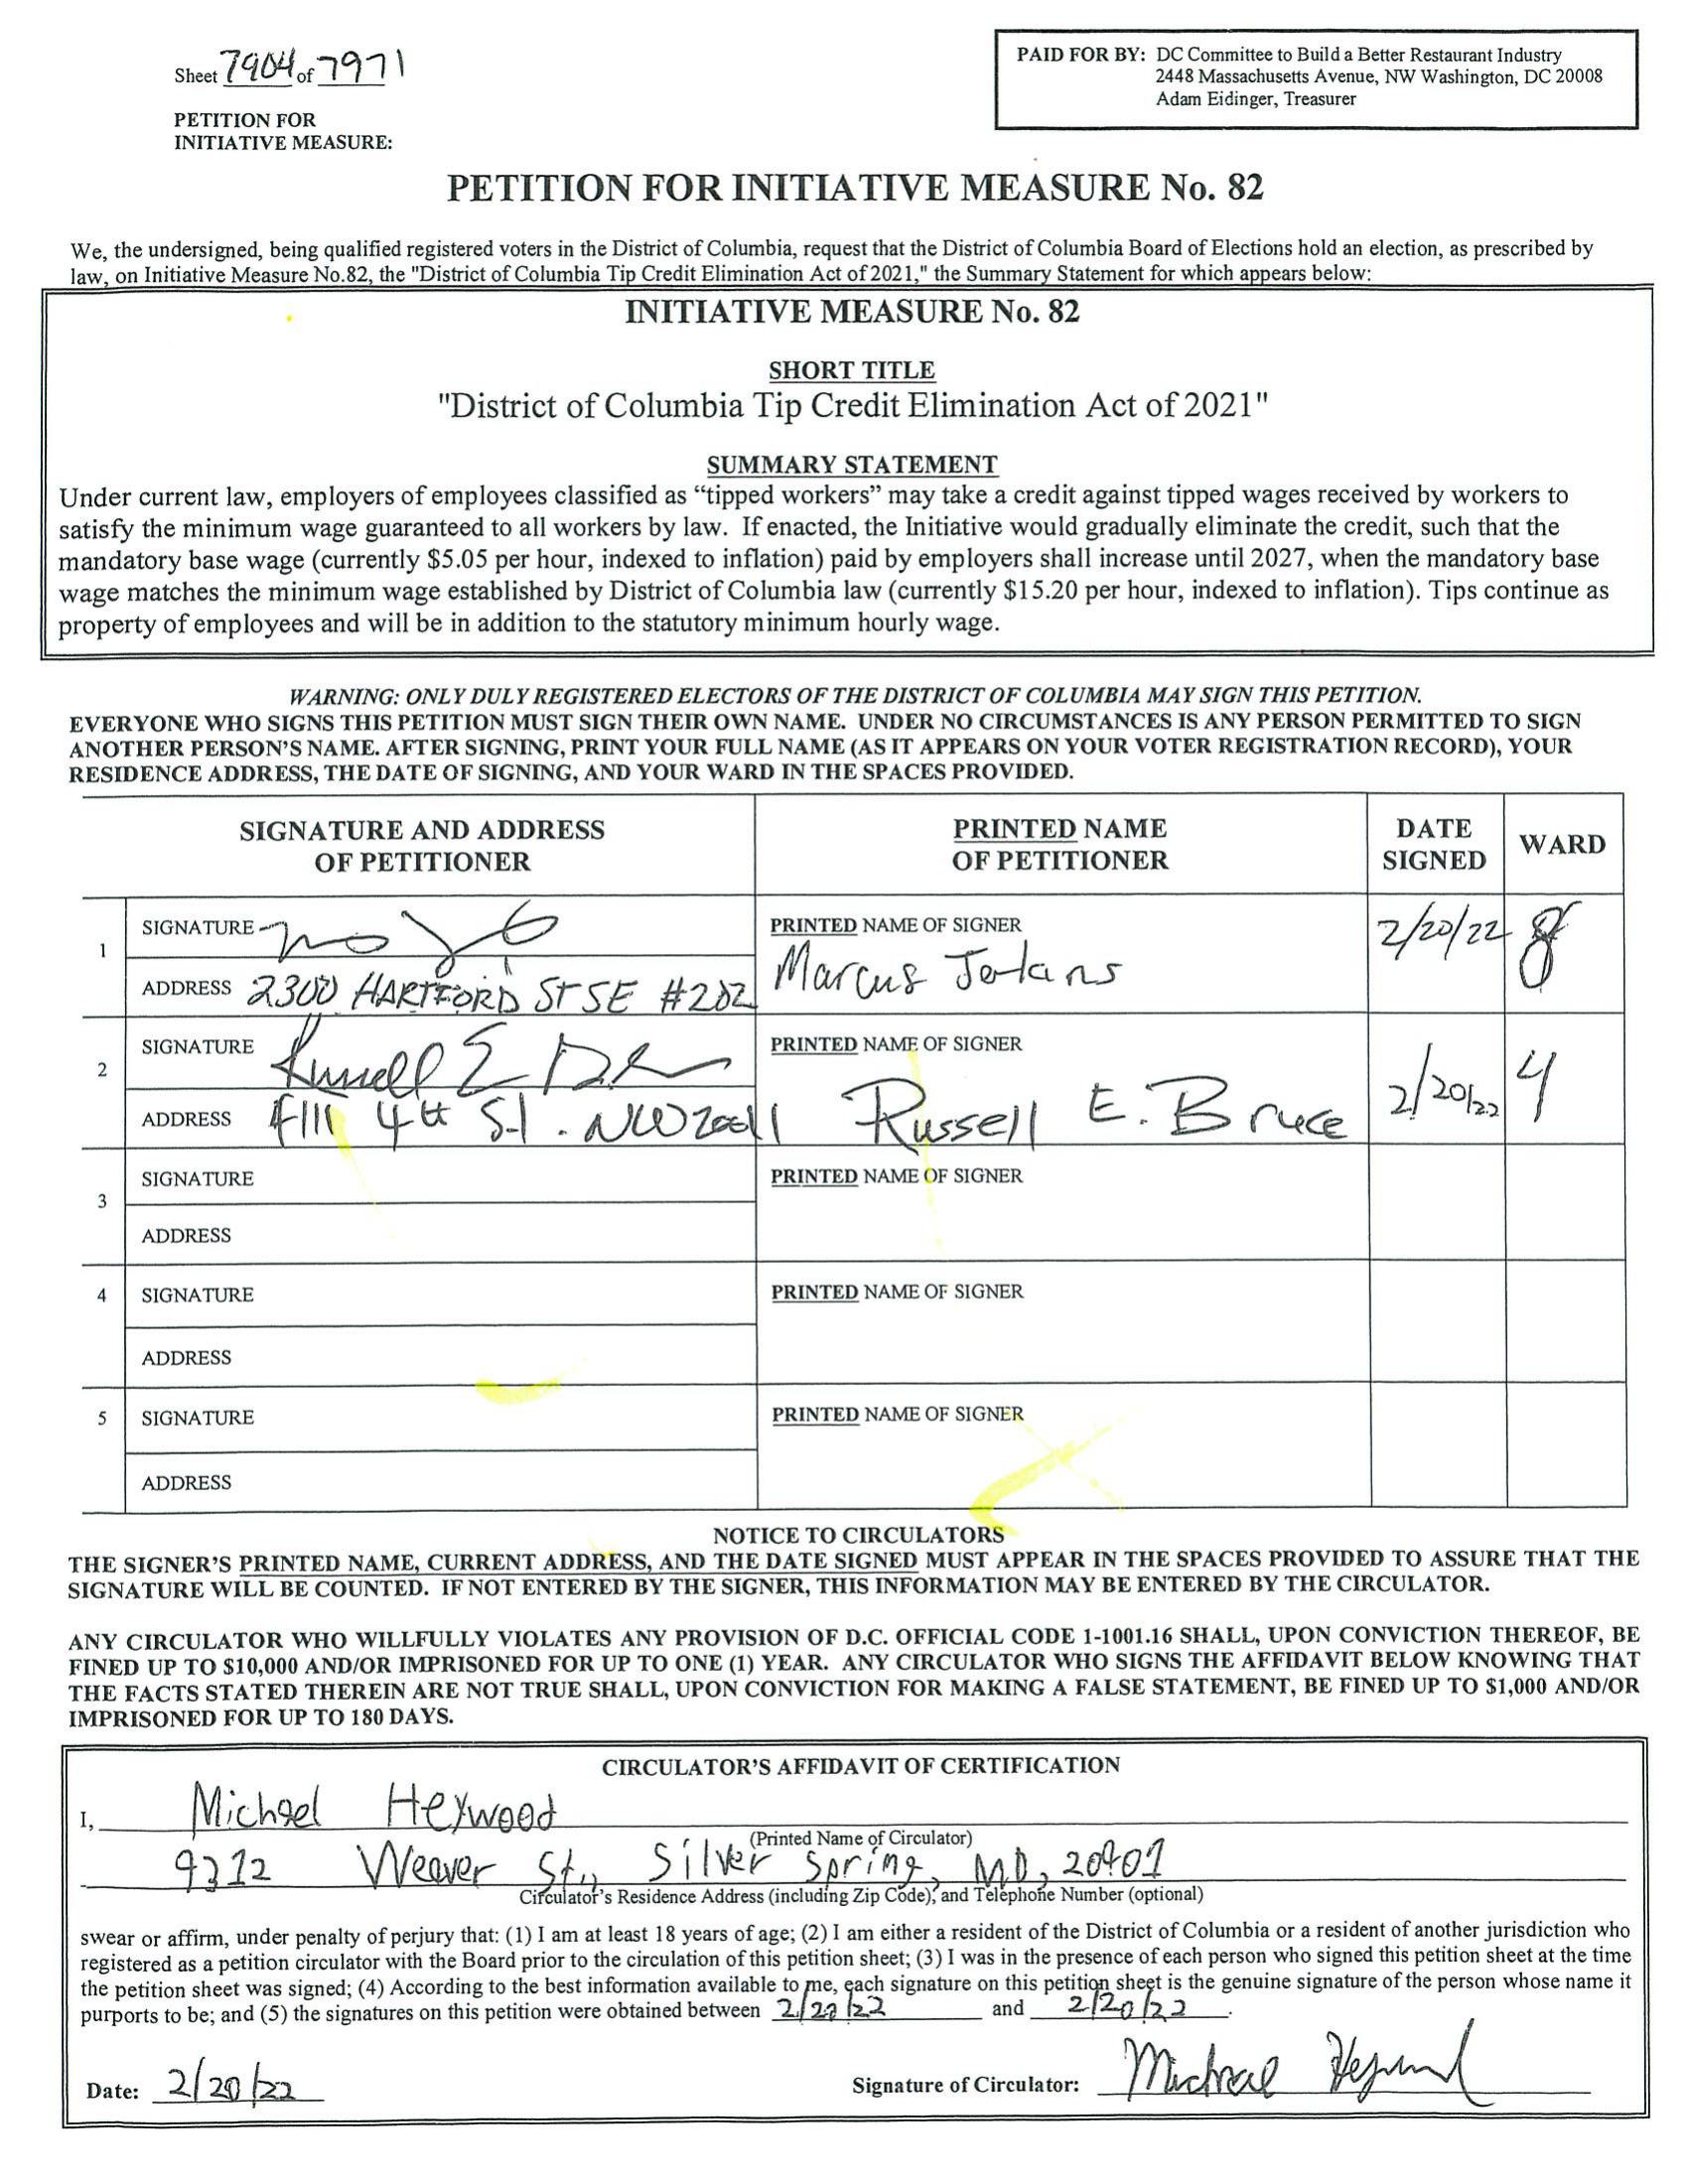 Sheet 7904 of 7971
PAID FOR BY: DC Committee to Build a Better Restaurant Industry
2448 Massachusetts Avenue, NW Washington, DC 20008
Adam Eidinger, Treasurer
PETITION FOR
INITIATIVE MEASURE:
PETITION FOR INITIATIVE MEASURE No. 82
We, the undersigned, being qualified registered voters in the District of Columbia, request that the District of Columbia Board of Elections hold an election, as prescribed by
law, on Initiative Measure No.82, the "District of Columbia Tip Credit Elimination Act of 2021," the Summary Statement for which appears below:
INITIATIVE MEASURE No. 82
SHORT TITLE
"District of Columbia Tip Credit Elimination Act of 2021"
SUMMARY STATEMENT
Under current law, employers of employees classified as “tipped workers” may take a credit against tipped wages received by workers to
satisfy the minimum wage guaranteed to all workers by law. If enacted, the Initiative would gradually eliminate the credit, such that the
mandatory base wage (currently $5.05 per hour, indexed to inflation) paid by employers shall increase until 2027, when the mandatory base
wage matches the minimum wage established by District of Columbia law (currently $15.20 per hour, indexed to inflation). Tips continue as
property of employees and will be in addition to the statutory minimum hourly wage.
WARNING: ONLY DULY REGISTERED ELECTORS OF THE DISTRICT OF COLUMBIA MAY SIGN THIS PETITION.
EVERYONE WHO SIGNS THIS PETITION MUST SIGN THEIR OWN NAME. UNDER NO CIRCUMSTANCES IS ANY PERSON PERMITTED TO SIGN
ANOTHER PERSON'S NAME. AFTER SIGNING, PRINT YOUR FULL NAME (AS IT APPEARS ON YOUR VOTER REGISTRATION RECORD), YOUR
RESIDENCE ADDRESS, THE DATE OF SIGNING, AND YOUR WARD IN THE SPACES PROVIDED.
SIGNATURE AND ADDRESS
OF PETITIONER
PRINTED NAME
OF PETITIONER
DATE
SIGNED
WARD
1
SIGNATURE
ADDRESS 2300 HARTFORD ST SE #202
PRINTED NAME OF SIGNER
Marcus
2/20/22
8
2
SIGNATURE Russell E
ADDRESS 4th St. NW 20011
PRINTED NAME OF SIGNER
Russell E. Bruce
2/20/22
4
3
SIGNATURE
ADDRESS
PRINTED NAME OF SIGNER
4
SIGNATURE
ADDRESS
PRINTED NAME OF SIGNER
5
SIGNATURE
ADDRESS
PRINTED NAME OF SIGNER
NOTICE TO CIRCULATORS
THE SIGNER'S PRINTED NAME, CURRENT ADDRESS, AND THE DATE SIGNED MUST APPEAR IN THE SPACES PROVIDED TO ASSURE THAT THE
SIGNATURE WILL BE COUNTED. IF NOT ENTERED BY THE SIGNER, THIS INFORMATION MAY BE ENTERED BY THE CIRCULATOR.
ANY CIRCULATOR WHO WILLFULLY VIOLATES ANY PROVISION OF D.C. OFFICIAL CODE 1-1001.16 SHALL, UPON CONVICTION THEREOF, BE
FINED UP TO $10,000 AND/OR IMPRISONED FOR UP TO ONE (1) YEAR. ANY CIRCULATOR WHO SIGNS THE AFFIDAVIT BELOW KNOWING THAT
THE FACTS STATED THEREIN ARE NOT TRUE SHALL, UPON CONVICTION FOR MAKING A FALSE STATEMENT, BE FINED UP TO $1,000 AND/OR
IMPRISONED FOR UP TO 180 DAYS.
CIRCULATOR'S AFFIDAVIT OF CERTIFICATION
I, Michael Heywood
(Printed Name of Circulator)
9312 Weaver St., Silver Spring, MD, 20901
Circulator's Residence Address (including Zip Code), and Telephone Number (optional)
swear or affirm, under penalty of perjury that: (1) I am at least 18 years of age; (2) I am either a resident of the District of Columbia or a resident of another jurisdiction who
registered as a petition circulator with the Board prior to the circulation of this petition sheet; (3) I was in the presence of each person who signed this petition sheet at the time
the petition sheet was signed; (4) According to the best information available to me, each signature on this petition sheet is the genuine signature of the person whose name it
purports to be; and (5) the signatures on this petition were obtained between 2/20/22 and 2/20/22.
Date: 2/20/22
Signature of Circulator: Michael Heywood